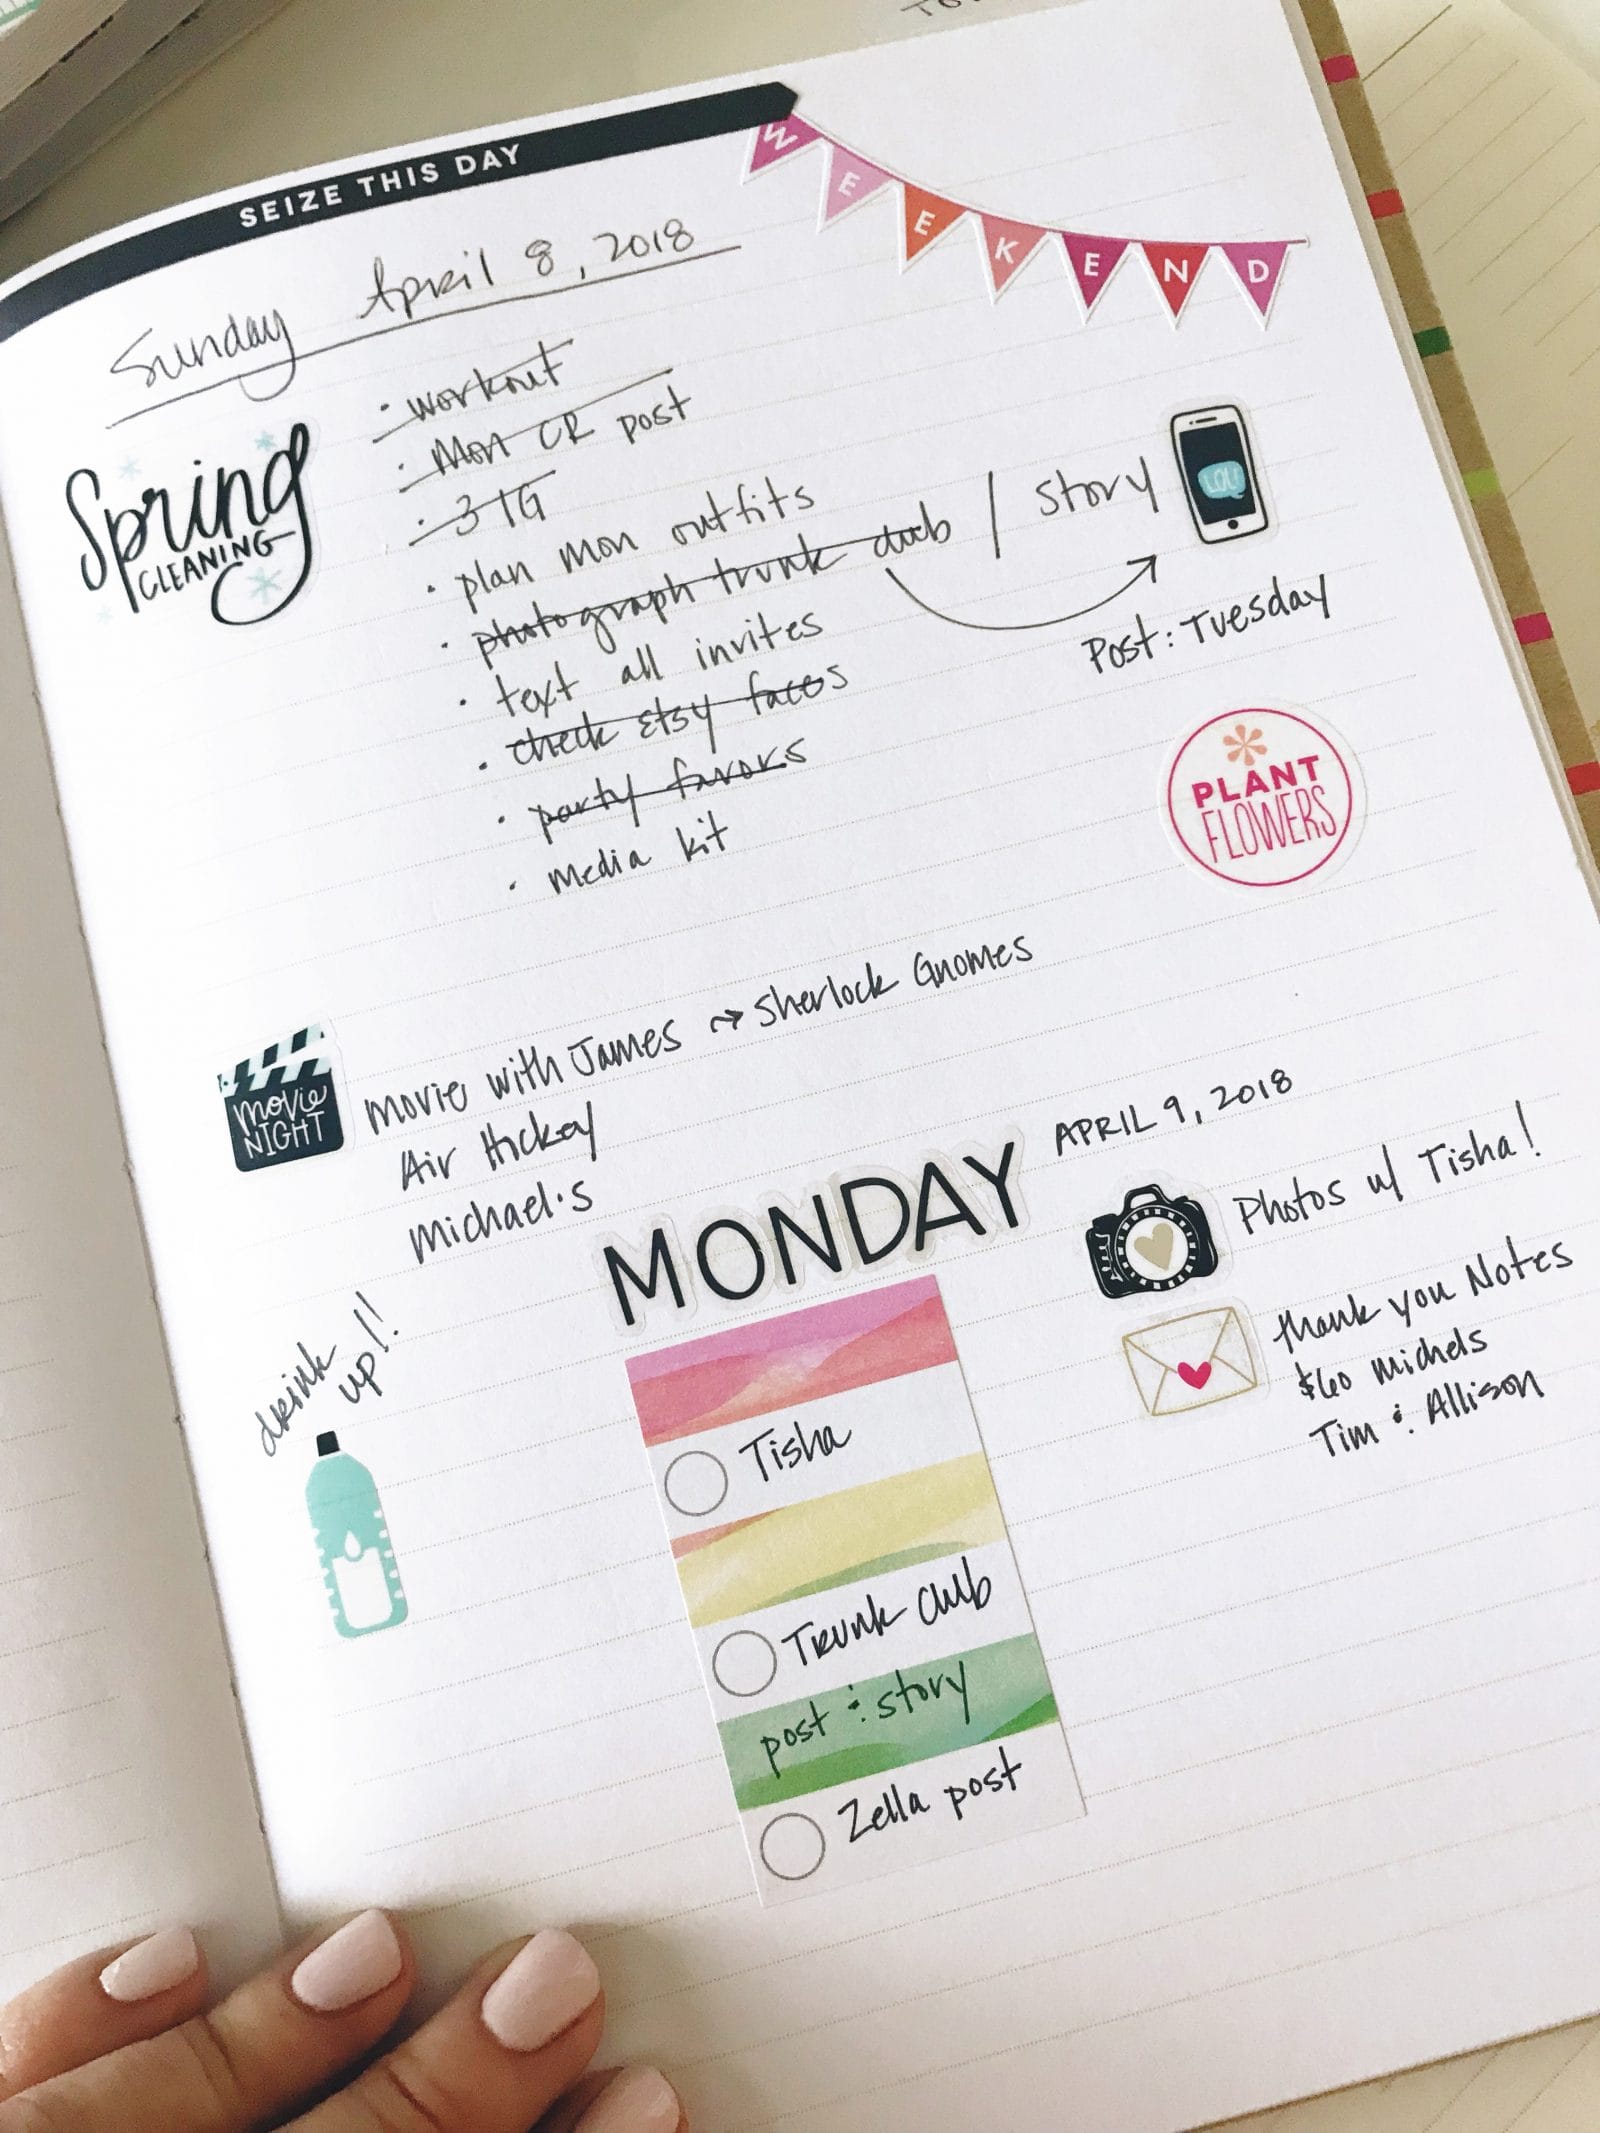 SEIZE THIS DAY
WEEKEND
Sunday April 8, 2018
Spring
CLEANING
· workout
· Mon CR post
· 3 IG
· plan mon outfits
· photograph trunk club / story
LOL
Post: Tuesday
· text all invites
· check Etsy faces
· party favors
· media kit
PLANT
FLOWERS
movie NIGHT
movie with James → Sherlock Gnomes
Air Hickey
Michael's
MONDAY
APRIL 9, 2018
Photos w/ Tisha!
thank you Notes
$60 Michels
Tim & Allison
drink
up!!
Tisha
Trunk Club
post & story
Zella post